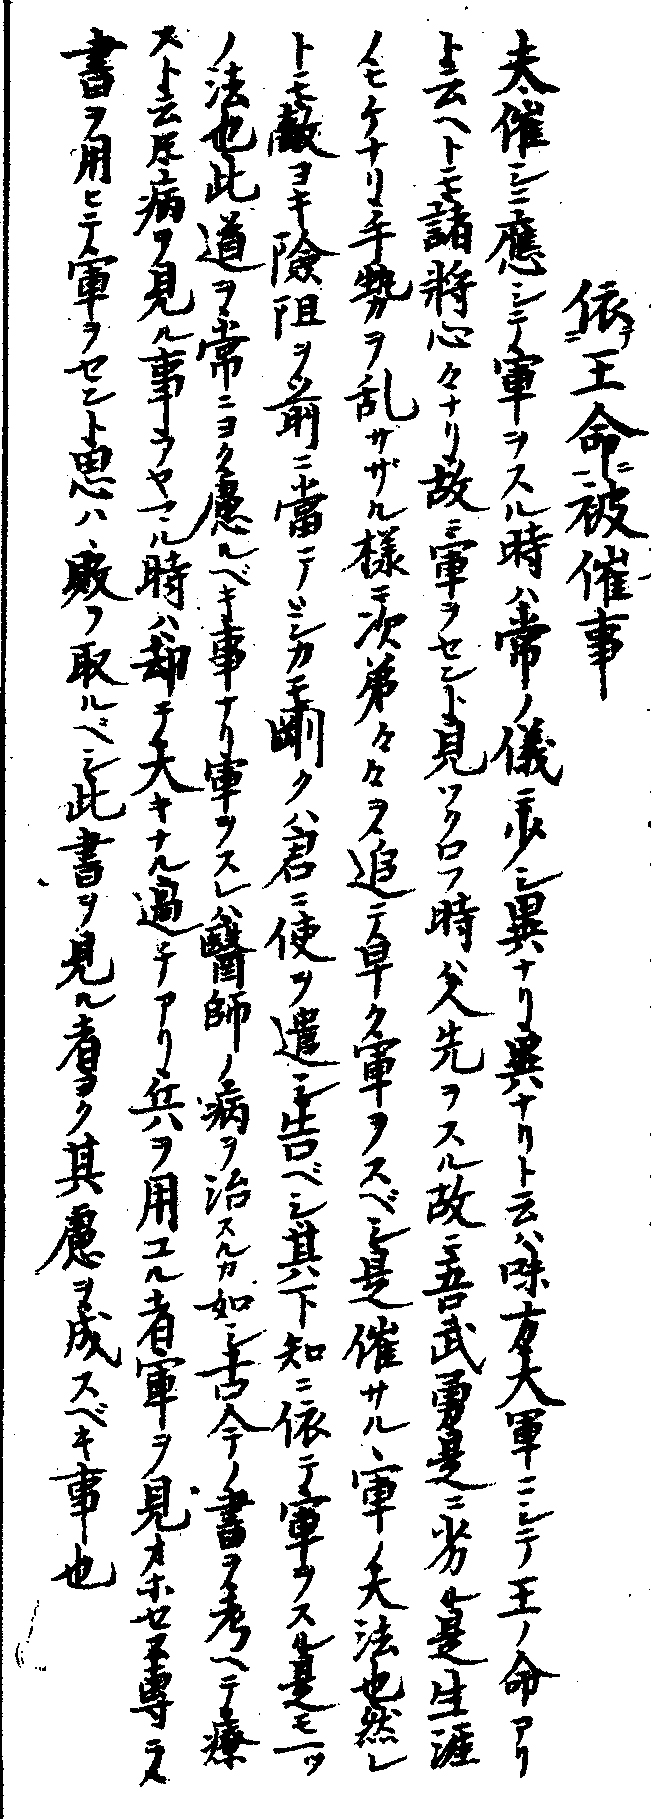 依テ王命ニ被催事
夫催シニ應シテ軍ヲスル時ハ常ノ儀ニ少シ異ナリ異ナリト云ハ味方大軍ニシテ王ノ命アリ
ト云ヘトモ諸將心々ナリ故ニ軍ヲセント見ツクロフ時ハ人先ヲスル故ニ吾武勇是ニ劣ル是生涯
ノモケナリ手勢ヲ乱サザル様ニ次第々々ヲ追テ早ク軍ヲスベシ是催サルヽ軍ノ大法也然レ
トモ敵ヨキ險阻ヲ前ニ當テアシカモ剛クハ君ニ使ヲ遣シ告ベシ其下知ニ依テ軍ヲスル是モ一ツ
ノ法也此道ヲ常ニヨク慮ルベキ事ナリ軍ヲスレハ醫師ノ病ヲ治スルカ如シ古今ノ書ヲ考ヘテ療
スト云尼病ヲ見ル事ヲヤマル時ハ却テ大キナル過チアリ兵ヲ用ユル者軍ヲ見オホセス專ラ
書ヲ用ヒテ軍ヲセント思ハヽ敗ヲ取ルベシ此書ヲ見ル者ヨク其慮ヲ成スベキ事也